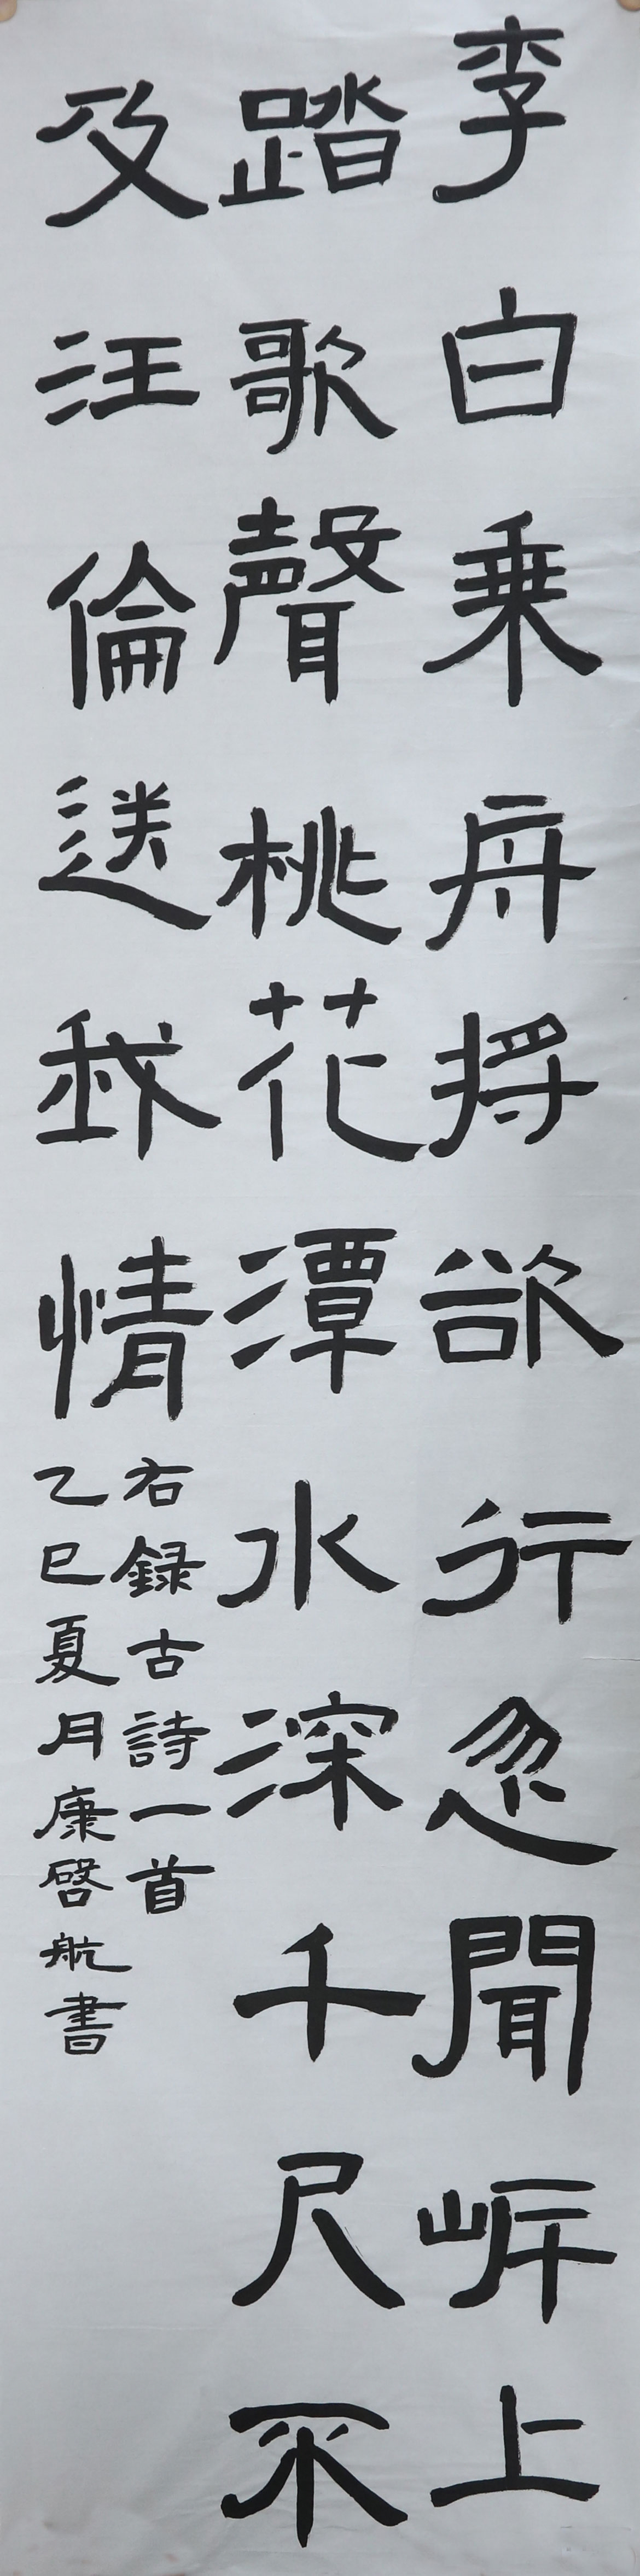 李白乗舟将欲行忽聞岸上
踏歌聲桃花潭水深千尺不
及汪倫送我情
右録古詩一首
乙巳夏月康啓航書